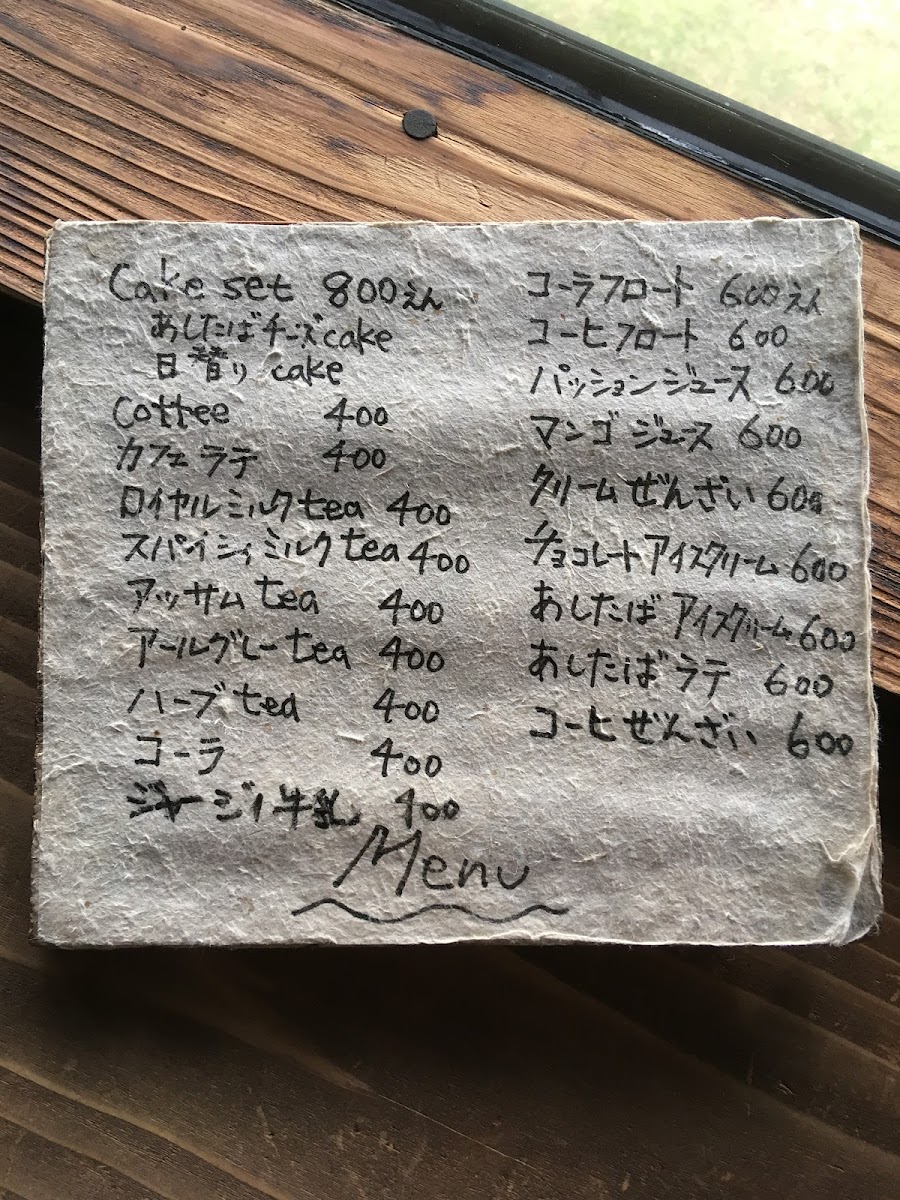 Cake set 800えん
あしたばチーズcake
日替り cake
Coffee 400
カフェラテ 400
ロイヤルミルクtea 400
スパイシィミルクtea 400
アッサムtea 400
アールグレーtea 400
ハーブtea 400
コーラ 400
ジャージィ牛乳 400
コーラフロート 600えん
コーヒフロート 600
パッションジュース 600
マンゴジュース 600
クリームぜんざい 600
チョコレートアイスクリーム 600
あしたばアイスクリーム 600
あしたばラテ 600
コーヒぜんざい 600
Menu